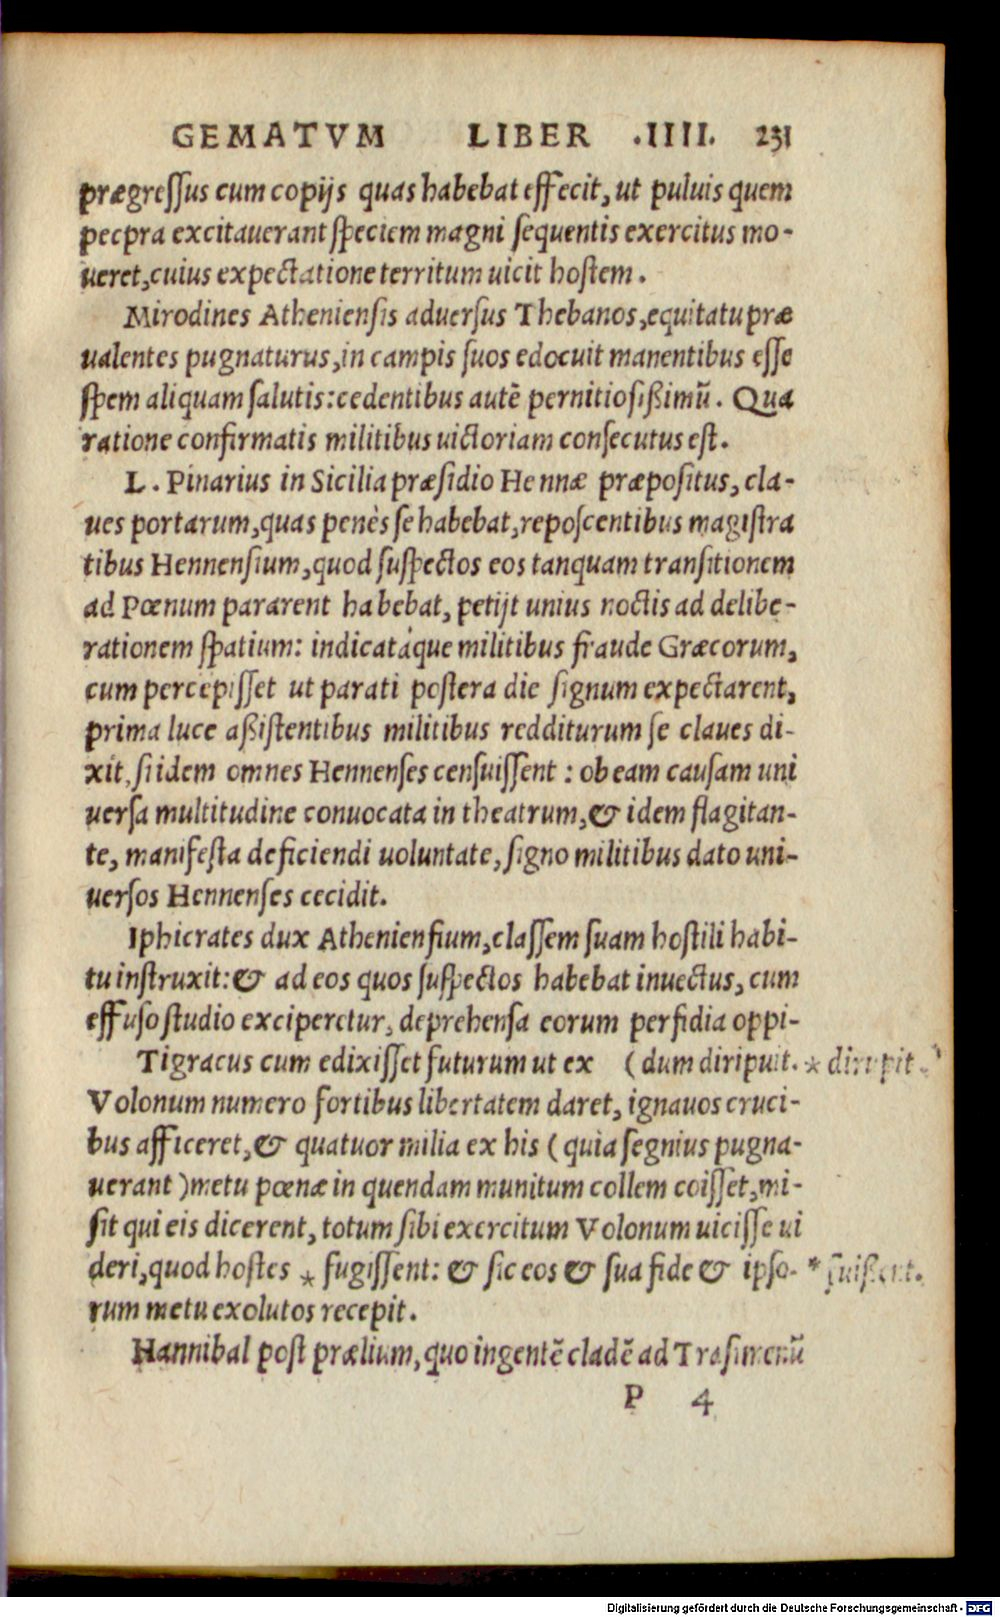 GEMATVM LIBER .IIII. 231
prægressus cum copijs quas habebat effecit, ut puluis quem
pecpra excitauerant speciem magni sequentis exercitus mo-
ueret, cuius expectatione territum uicit hostem.
Mirodines Atheniensis aduersus Thebanos, equitatu præ
ualentes pugnaturus, in campis suos edocuit manentibus esse
spem aliquam salutis: cedentibus autē pernitiosißimū. Qua
ratione confirmatis militibus uictoriam consecutus est.
L. Pinarius in Sicilia præsidio Hennæ præpositus, cla-
ues portarum, quas penès se habebat, reposcentibus magistra
tibus Hennensium, quod suspectos eos tanquam transitionem
ad Pœnum pararent habebat, petijt unius noctis ad delibe-
rationem spatium: indicatáque militibus fraude Græcorum,
cum percepisset ut parati postera die signum expectarent,
prima luce aßistentibus militibus redditurum se claues di-
xit, si idem omnes Hennenses censuissent : ob eam causam uni
uersa multitudine conuocata in theatrum, & idem flagitan-
te, manifesta deficiendi uoluntate, signo militibus dato uni-
uersos Hennenses cecidit.
Iphicrates dux Atheniensium, classem suam hostili habi-
tu instruxit: & ad eos quos suspectos habebat inuectus, cum
effuso studio exciperetur, deprehensa eorum perfidia oppi-
Tigracus cum edixisset futurum ut ex (dum diripuit. * dirupit.
Volonum numero fortibus libertatem daret, ignauos cruci-
bus afficeret, & quatuor milia ex his (quia segnius pugna-
uerant) metu pœnæ in quendam munitum collem coisset, mi-
sit qui eis dicerent, totum sibi exercitum Volonum uicisse ui
deri, quod hostes * fugissent: & sic eos & sua fide & ipso- * fuißent.
rum metu exolutos recepit.
Hannibal post prælium, quo ingentē cladē ad Trasimenū
P 4
Digitalisierung gefördert durch die Deutsche Forschungsgemeinschaft - DFG